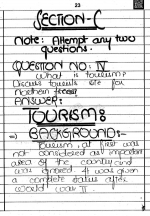 23
SECTION-C
Note: Attempt any two
questions.
QUESTION NO: IV
What is tourism?
Discuss tourists site for
Northern
ANSWER:
TOURISM:
=> BACKGROUND:-
Tourism, at first was
not considered an important
area of the country and
was ignored. It was given
a complete status after
world war II.